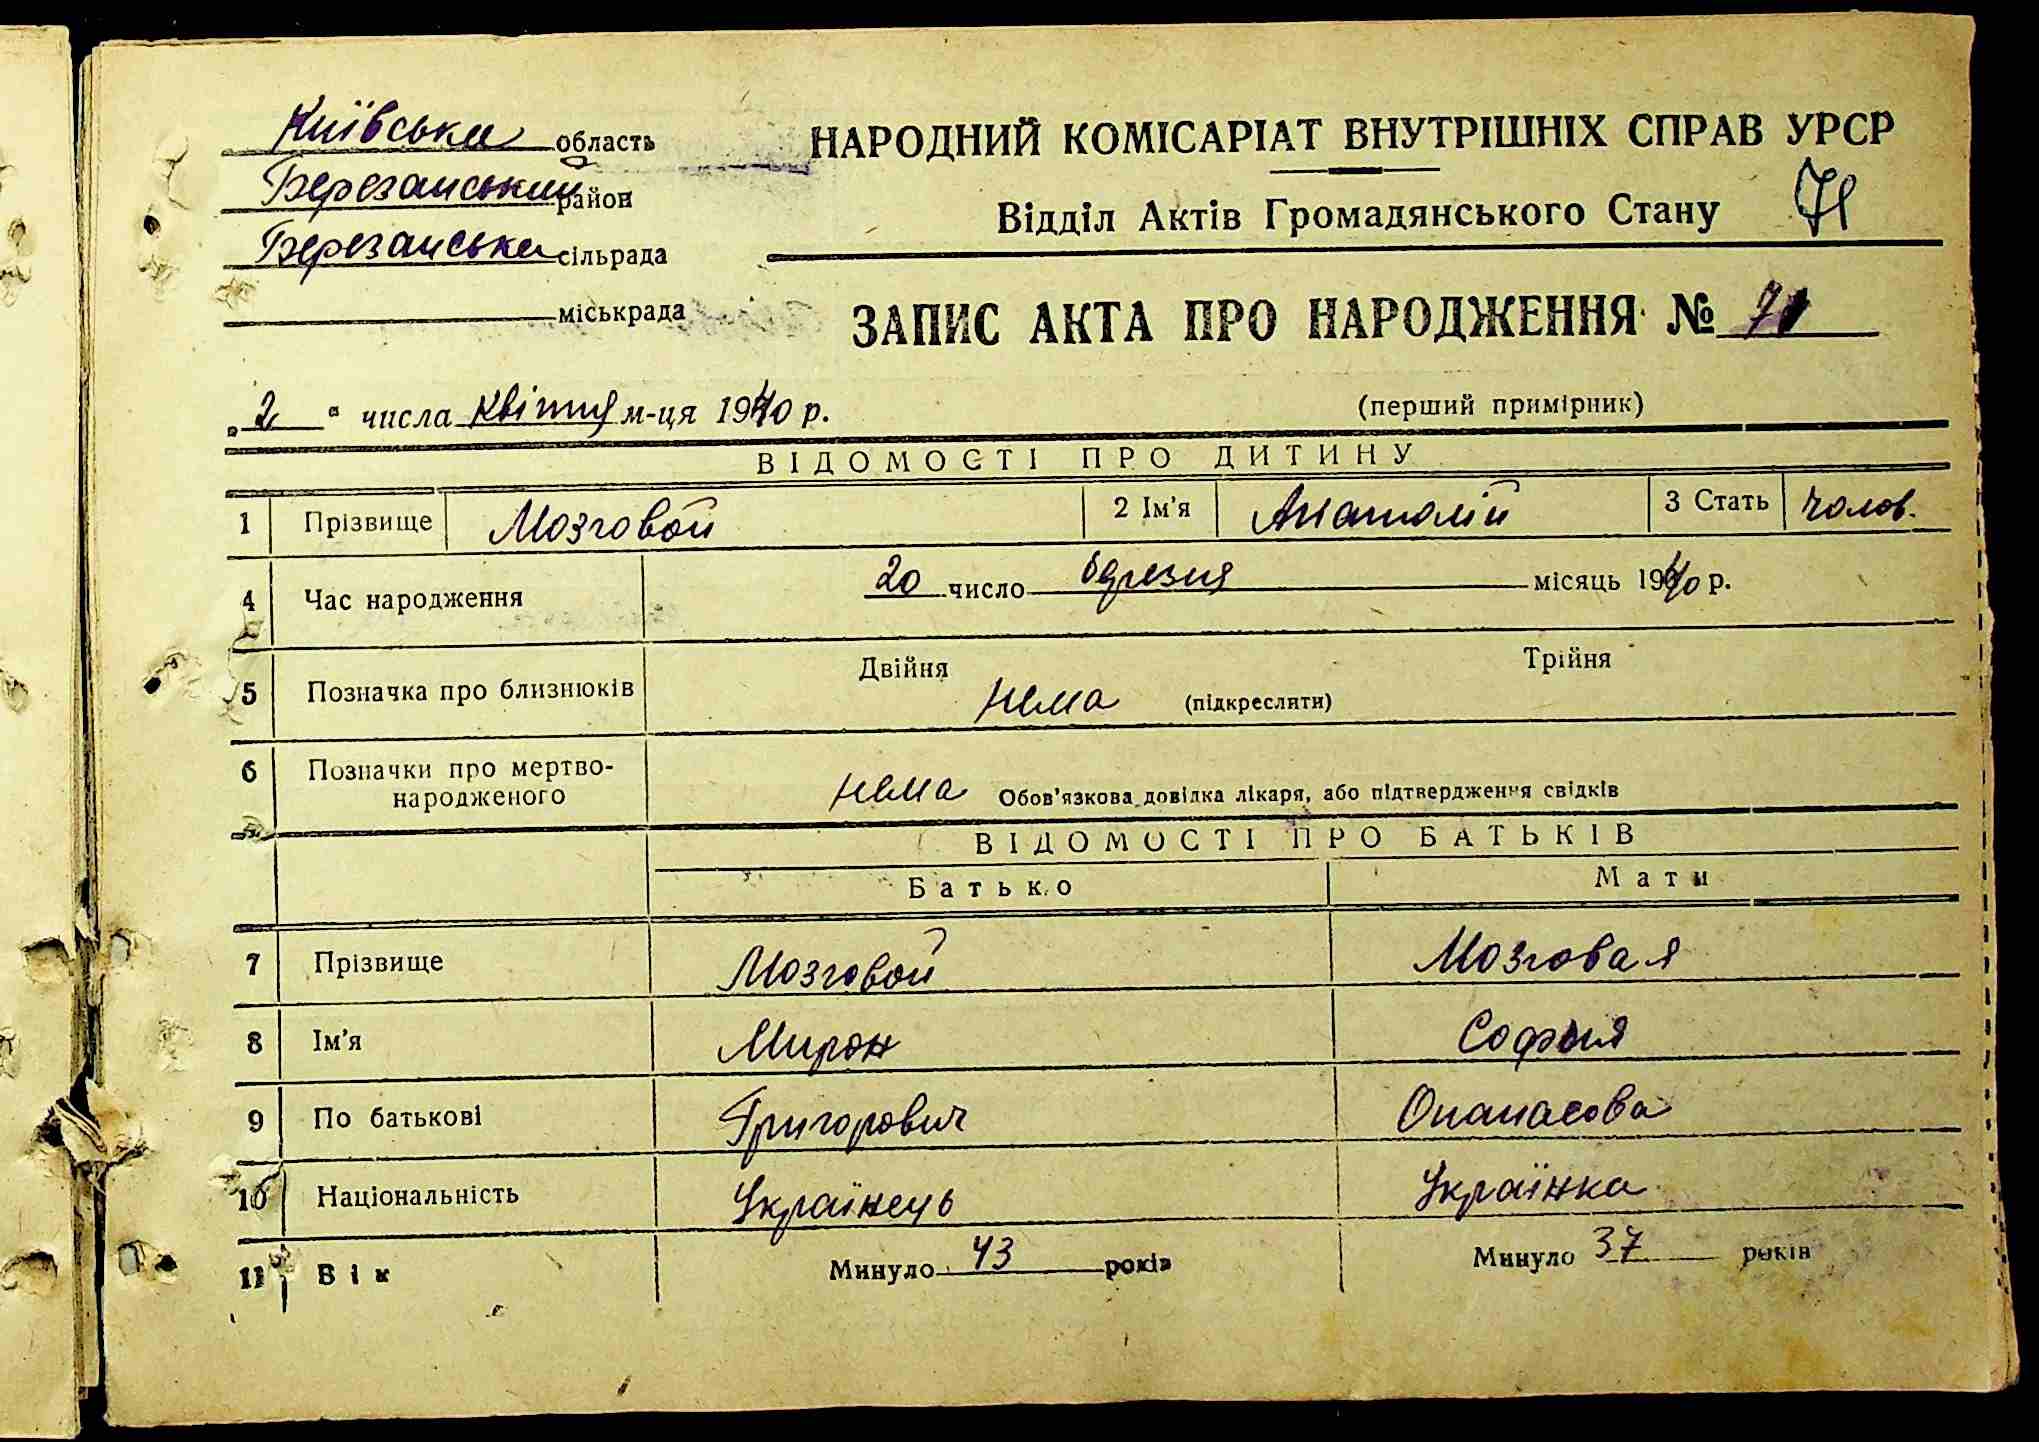 Київська область
Березанський район
Березанська сільрада
міськрада
НАРОДНИЙ КОМІСАРІАТ ВНУТРІШНІХ СПРАВ УРСР
Відділ Актів Громадянського Стану 71
ЗАПИС АКТА ПРО НАРОДЖЕННЯ № 71
„2“ числа квітня м-ця 1940 р. (перший примірник)
ВІДОМОСТІ ПРО ДИТИНУ
1 Прізвище Мозговой 2 Ім'я Анатолій 3 Стать чолов.
4 Час народження 20 число березня місяць 1940 р.
5 Позначка про близнюків Двійня нема (підкреслити) Трійня
6 Позначки про мертво-
народженого нема Обов'язкова довідка лікаря, або підтвердження свідків
ВІДОМОСТІ ПРО БАТЬКІВ
Батько Мати
7 Прізвище Мозговой Мозговая
8 Ім'я Мирон Софья
9 По батькові Григорович Опанасова
10 Національність Українець Українка
11 Вік Минуло 43 років Минуло 37 років